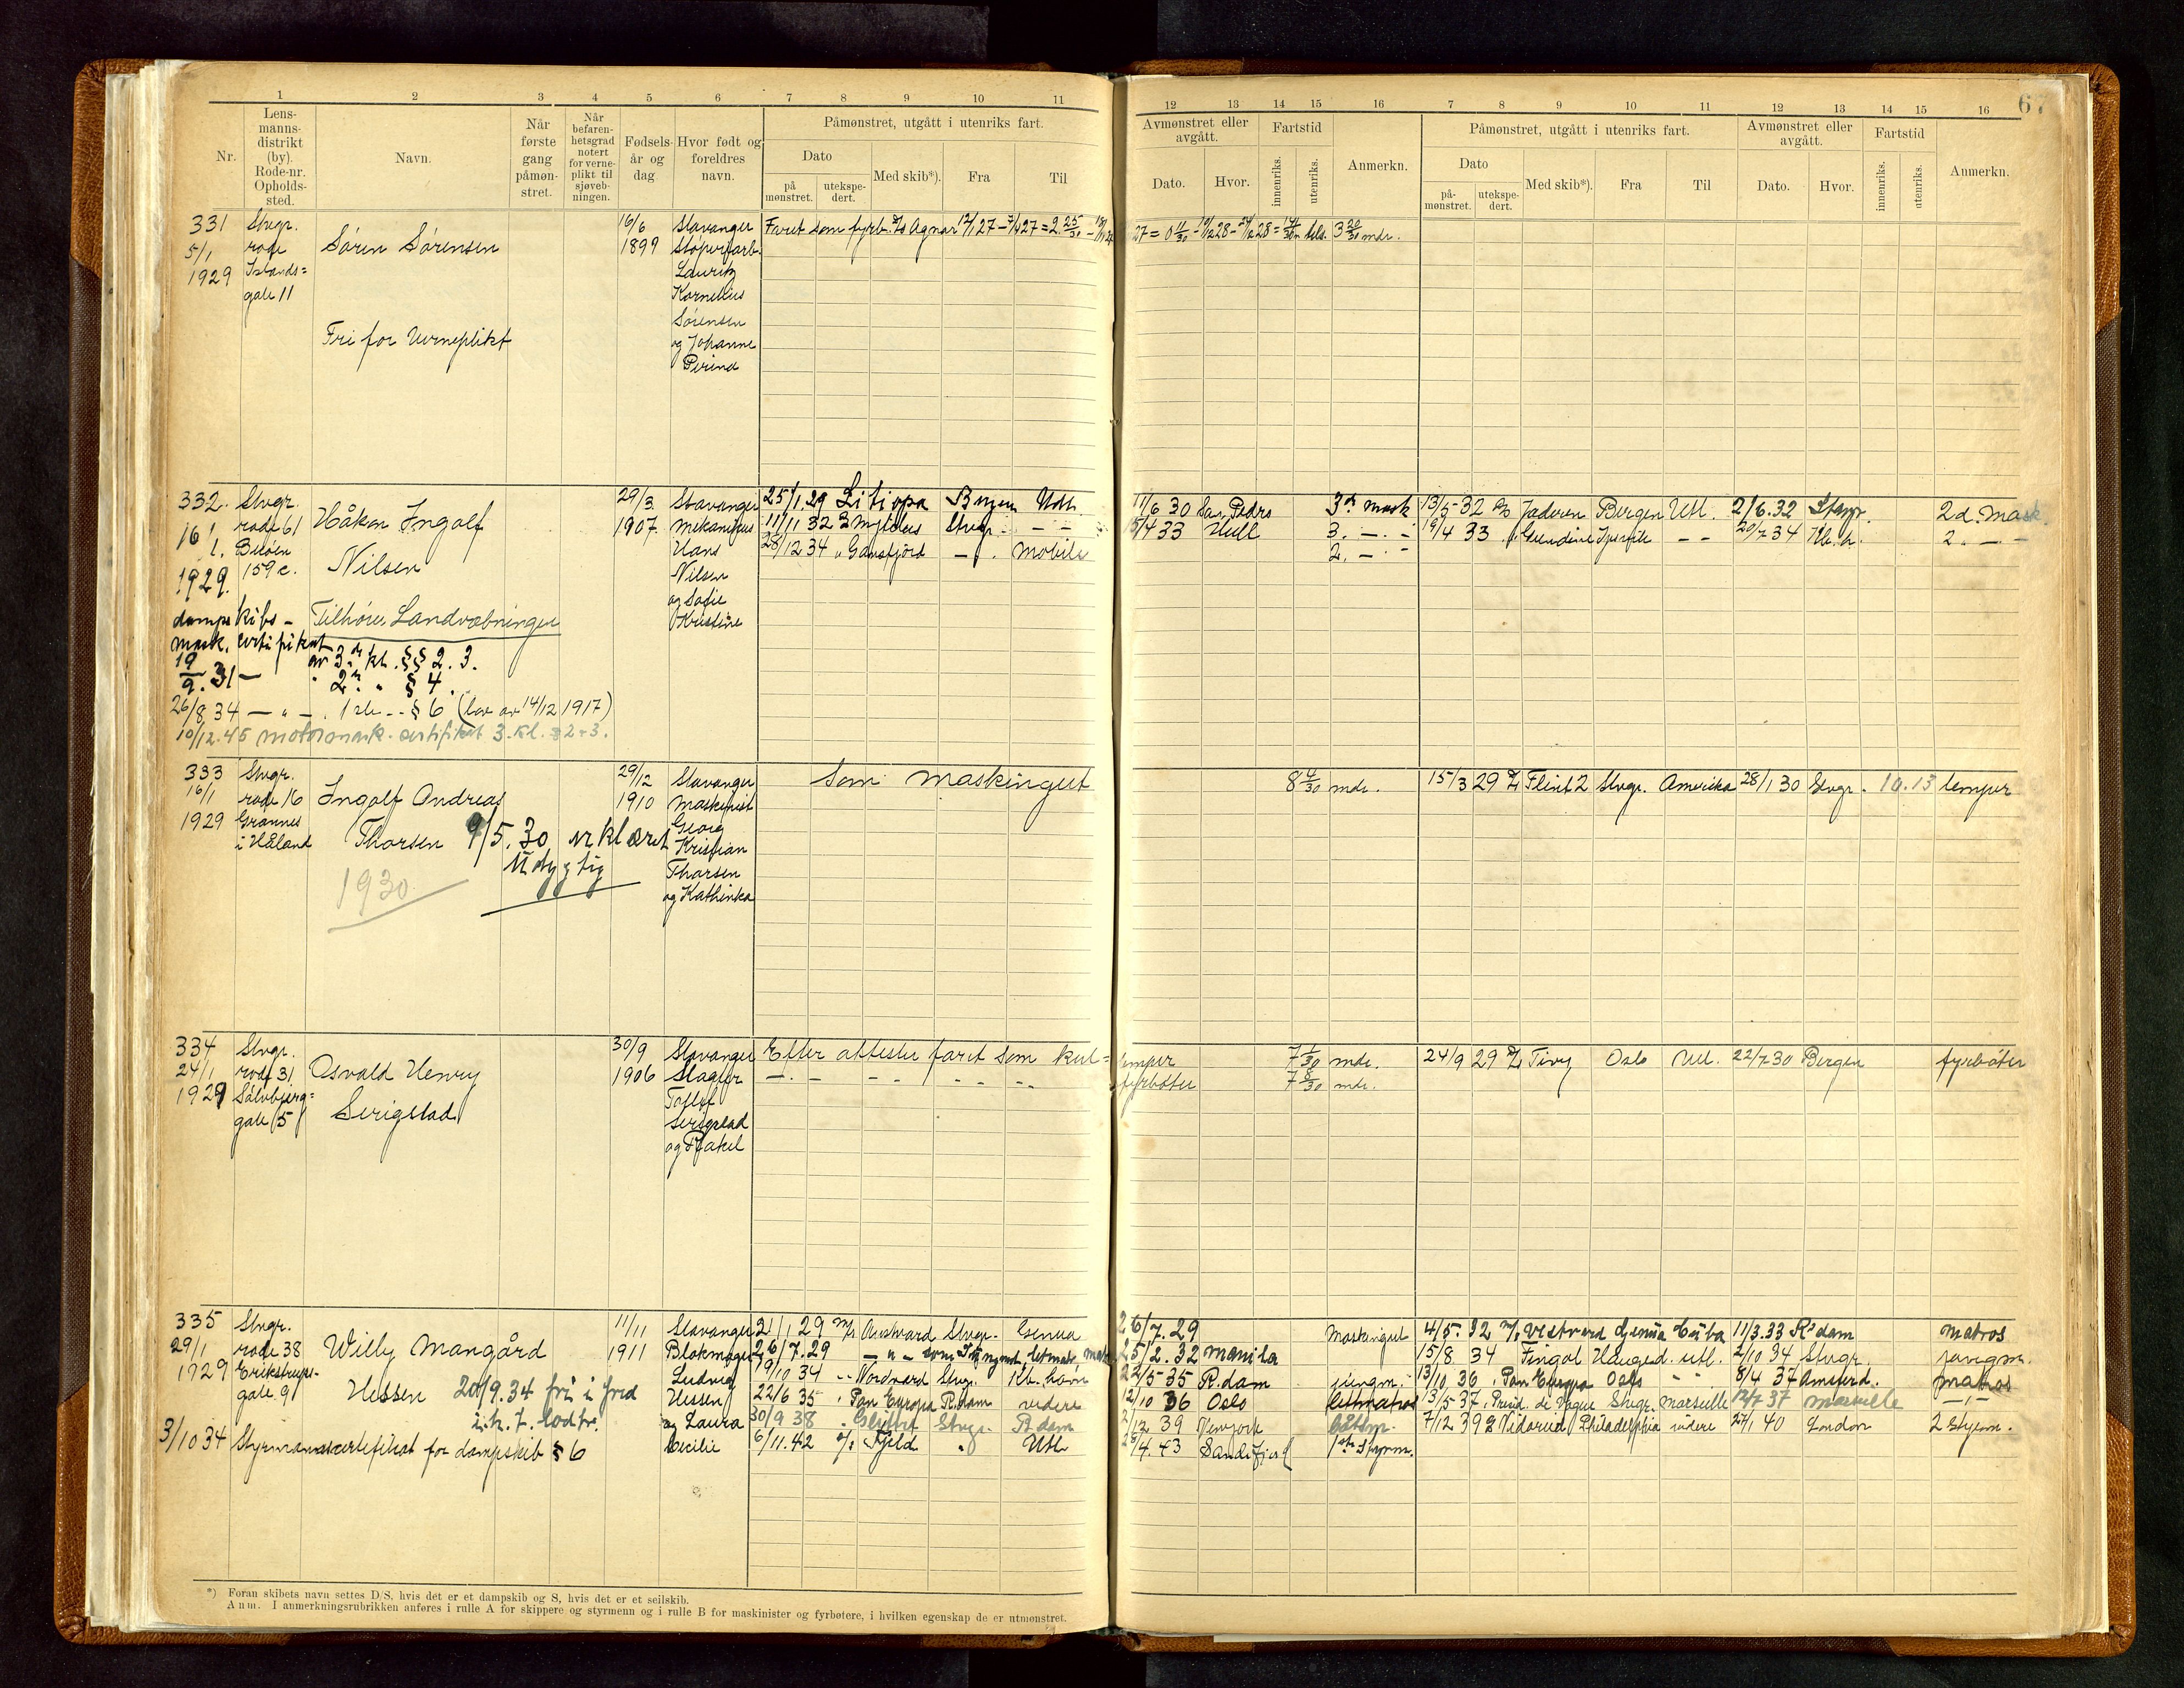 67
1 2 3 4 5 6 7 8 9 10 11 12 13 14 15 16 7 8 9 10 11 12 13 14 15 16
Nr.
Lens-
manns-
distrikt
(by).
Rode-nr.
Opholds-
sted.
Navn.
Når
første
gang
påmøn-
stret.
Når
befaren-
hetsgrad
notert
for verne-
plikt til
sjøveb-
ningen.
Fødsels-
år og
dag
Hvor født og
foreldres
navn.
Påmønstret, utgått i utenriks fart.
Dato
på
mønstret.
utekspe-
dert.
Med skib*).
Fra
Til
Avmønstret eller
avgått.
Dato.
Hvor.
Fartstid
innenriks.
utenriks.
Anmerkn.
Påmønstret, utgått i utenriks fart.
Dato
på-
mønstret.
utekspe-
dert.
Med skib*).
Fra
Til
Avmønstret eller
avgått.
Dato.
Hvor.
Fartstid
innenriks.
utenriks.
Anmerkn.
331 Stvgr. 16/6 Stavanger Faret som fyrb.
5/1 rode Søren Sørensen 1899
1929 Islands= Lauritz
gate 11 Kornelius
Sørensen
Fri for Verneplikt og Johanne
332. Stvgr. 29/3 Stavanger 25/1.29 Bergen Utl. 11/6 30 San Pedro 3dr mask 13/5-32 Jæderen Bergen Utl. 2/6.32 Stvgr. 2d. Mask.
16/1. rode 61 Håkon Ingolf 1907. Mekanikus 11/11 32 Stvgr. – – 5/4 33 Hull 3. – – 19/4 33 – – 20/7 34 2. – –
1929. Buøen 159c. Nilsen Hans 28/12 34 – . Mobile 2. – –
Nilsen
og Sofie
Kristine
dampskibs – Tilhører Landvæbningen
mask. certifikat
19/9.31 – av 3dr kl. §§ 2. 3.
" 2n " § 4.
26/8 34 – " – . 1ste – § 6 (lov av 14/12 1917)
10/12.45 motormask. certifikat 3. kl. § 2+3.
333 Stvgr. 29/12 Stavanger Som maskingut 8 mdr. 15/3 29 Flint 2 Stvgr. Amerika 28/1 30 Stvgr. 10.13 lemper
16/1 rode 16 Ingolf Andreas 1910 Maskinist
1929 Grannes Georg
i Håland Thorsen 9/5.30 erklæret Kristian
udygtig Thorsen
1930 og Kathinka
334 Stvgr. 30/9 Stavanger Efter attester faret som kul=lemper 7 1/30 mdr. 24/9 29 Oslo Utl. 22/7 30 Bergen fyrbøter
24/1 rode 31 Osvald Henry 1906 Slagter – . – – – – – – – fyrbøter 7 8/30 mdr.
1929 Sølvbjerg=
gate 5 Serigstad
Serigstad
og Rakel
335 Stvgr. 11/11 Stavanger 21/1 29 Stvgr. Genua 26/7.29 Maskingut 4/5. 32 Genua Cuba 11/3.33 R'dam matros
29/1 rode 38 Willy Mangård 1911 Blokmager 26/7.29 25/2.32 Manila 15/8 34 Fingal Hauges. utl. 2/10 34 Stvgr.
1929 Erikstrups- Ludvig 19/10 34 Nordvard Stvgr. Kb. havn 22/5-35 R.dam jungm. 13/10 36 Pan Europa Oslo – " 8/4 37 Amsterd. matros
gate 9 Hessen 20/9.34 fri i fred Hessen 22/6 35 Pan Europa R.dam videre 12/10 36 Oslo letmatros 13/5-37 Stvgr. Marseille 12/7 37 Marseille – " –
og Laura 30/9 38 Stvgr. R.dam 39 Newyork båtsm. 7/12 39 Philadelphia videre 27/1 40 London 2 styrm.
3/10 34 Styrmannscertifikat for dampskib § 6 Cecilie 6/11.42 Fjeld " Utl. 43 Sandefjord 1ste Styrm.
*) Foran skibets navn settes D/S, hvis det er et dampskib og S, hvis det er et seilskib.
Anm. I anmerkningsrubrikken anføres i rulle A for skippere og styrmenn og i rulle B for maskinister og fyrbøtere, i hvilken egenskap de er utmønstret.